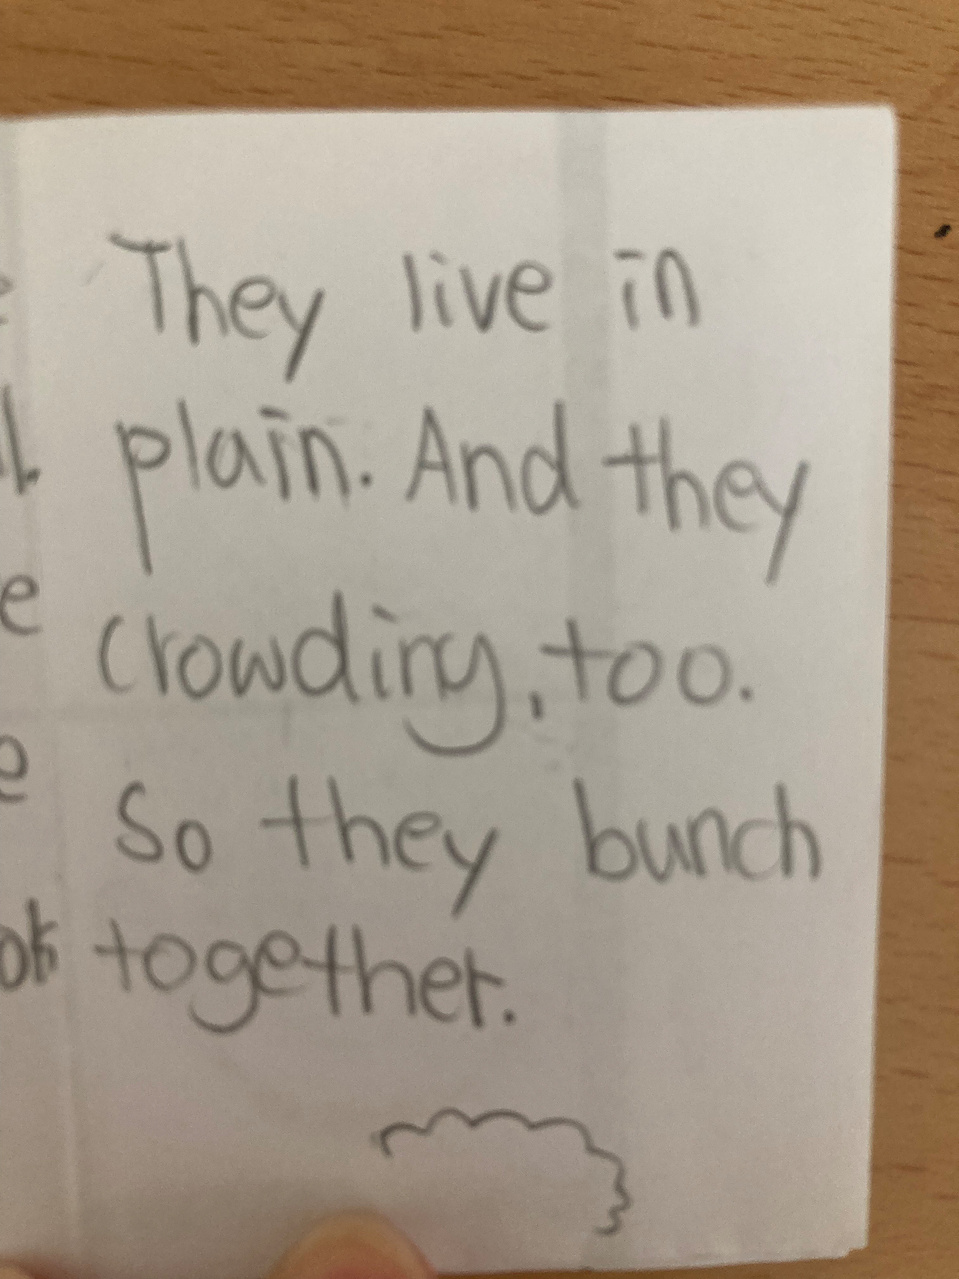 They live in
plain. And they
crowding, too.
So they bunch
together.